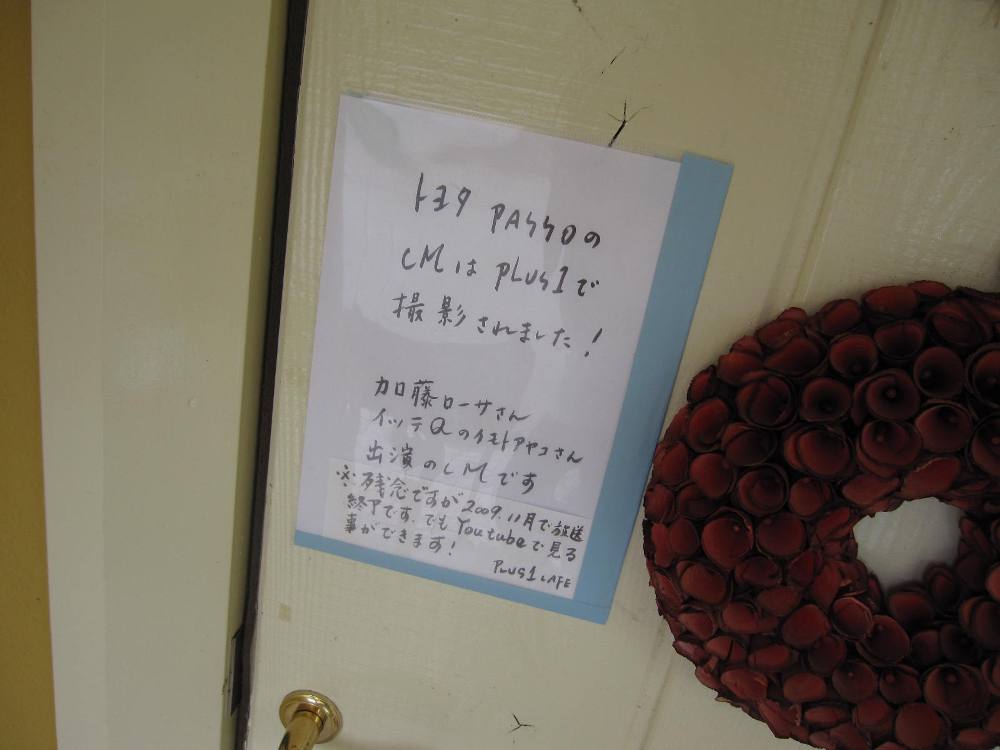 トヨタ PASSOの
CMは PLUS1で
撮影されました!
加藤ローサさん
イッテQのイモトアヤコさん
出演のCMです
※残念ですが2009.11月で放送
終了です。でもYoutubeで見る
事ができます!
PLUS1 CAFE